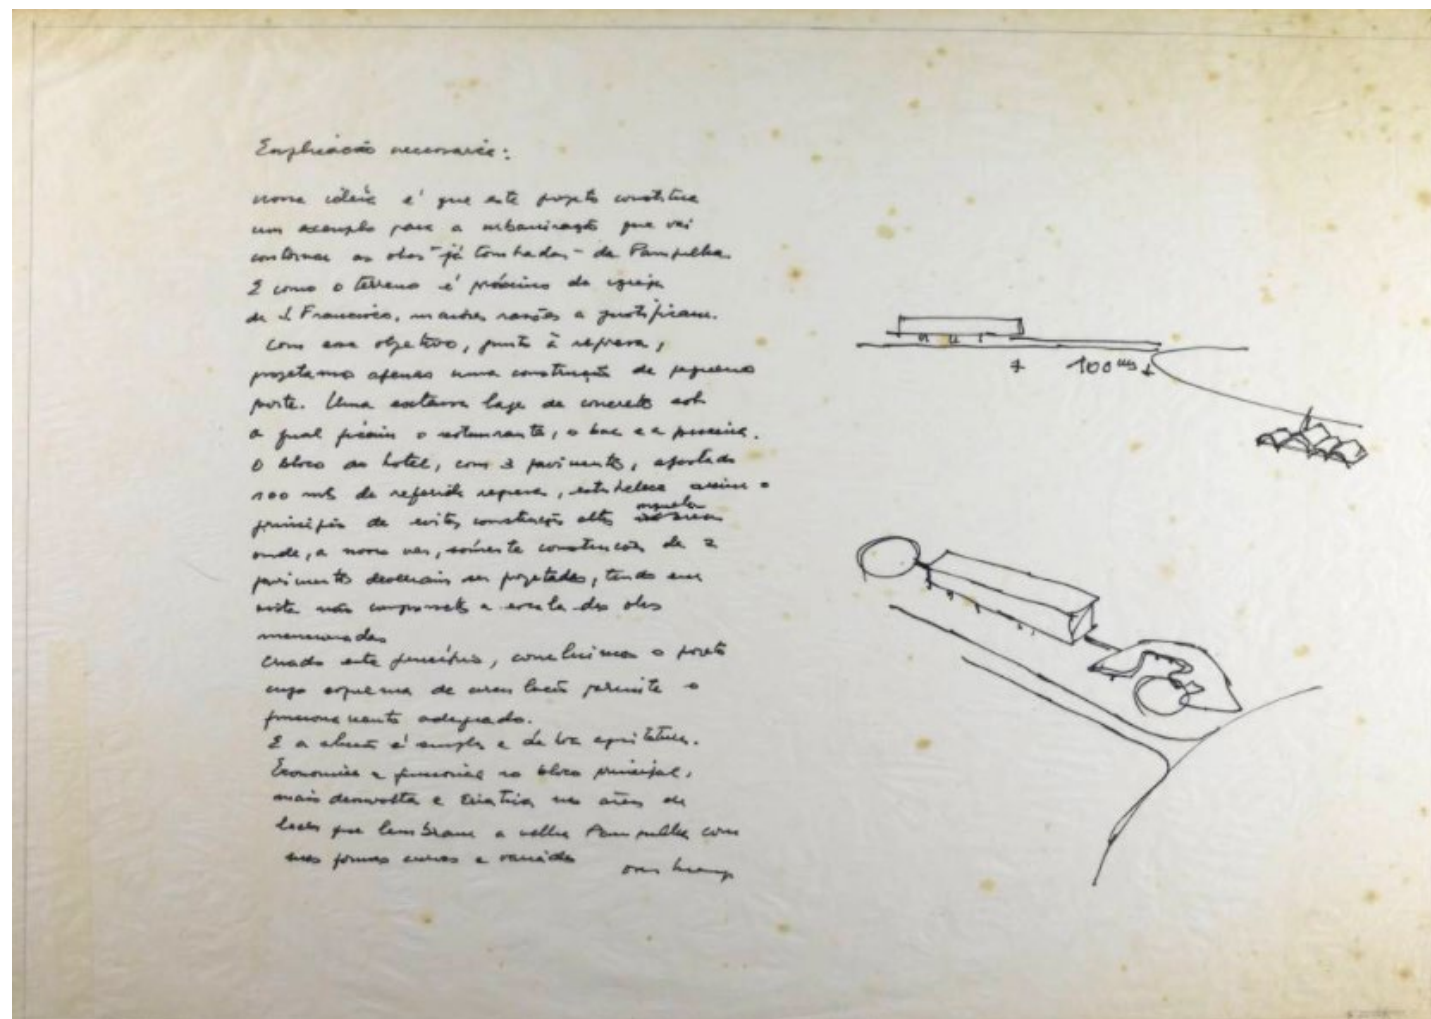 Explicação necessaria:
nossa idéia é que este projeto constitua
um exemplo para a urbanização que vai
contornar as obras - já tombadas - da Pampulha
E como o terreno é próximo da igreja
de S Francisco, maiores razões a justificam.
Com esse objetivo, junto à represa,
projetamos apenas uma construção de pequeno
porte. Uma extensa laje de concreto sob
a qual ficam o restaurante, o bar e a piscina.
O bloco do hotel, com 3 pavimentos, afastado
100 mts da referida represa, estabelece assim o
principio de evitar construções altas naquela
onde, a nosso ver, sómente construções de 2
pavimentos deveriam ser projetadas, tendo em
vista não comprometer a escala das obras
mencionadas
Criado este principio, concluimos o projeto
cujo esquema de circulação permite o
funcionamento adequado.
E a solução é simples e de boa arquitetura.
Economica e funcional no bloco principal,
mais desenvolta e criativa nas áreas de
lazer que lembram a velha Pampulha com
suas formas curvas e variadas
100 ms